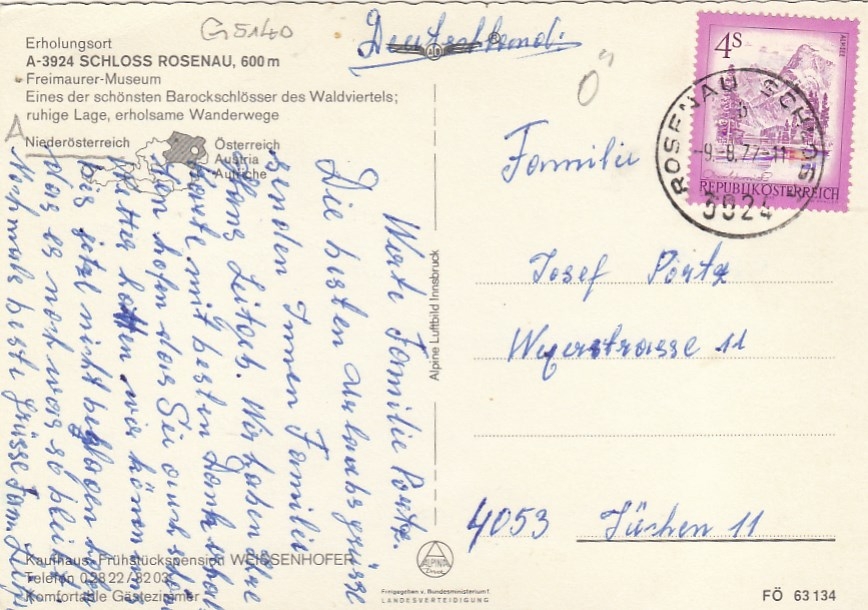 G 5140
Erholungsort
A-3924 SCHLOSS ROSENAU, 600 m
Freimaurer-Museum
Eines der schönsten Barockschlösser des Waldviertels;
ruhige Lage, erholsame Wanderwege
Niederösterreich
Österreich
Austria
Autriche
Werte Familie Portz.
Die besten Urlaubsgrüsse
senden Innen Familie
Hans Wir haben ihre
Karte mit besten Dank erhal
ten hofen das Sie auch schön
Wetter hatten wir können uns
bis jetzt nicht beklagen hofen
das es noch was so bleibt
Nochmals beste Grüsse Fam
Kaufhaus, Frühstückspension WEISSENHOFER
Telefon 02822/8203
Komfortable Gästezimmer
Alpine Luftbild Innsbruck
ALPINA
Druck
Freigegeben v. Bundesministerium f.
LANDESVERTEIDIGUNG
Deutschland
4S
ALMSEE
REPUBLIK ÖSTERREICH
ROSENAU SCHLOSS
-9.-8.77-11
3924
Familie
Josef Portz
Weyerstrasse 11
4053 Jüchen 11
FÖ 63 134